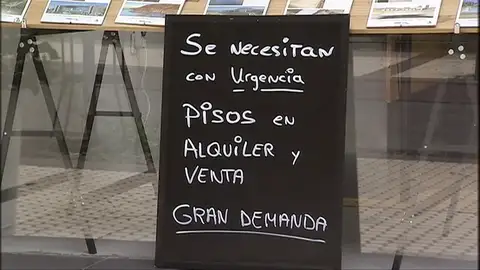 Se necesitan
con Urgencia
Pisos en
ALQUILER y
VENTA
GRAN DEMANDA